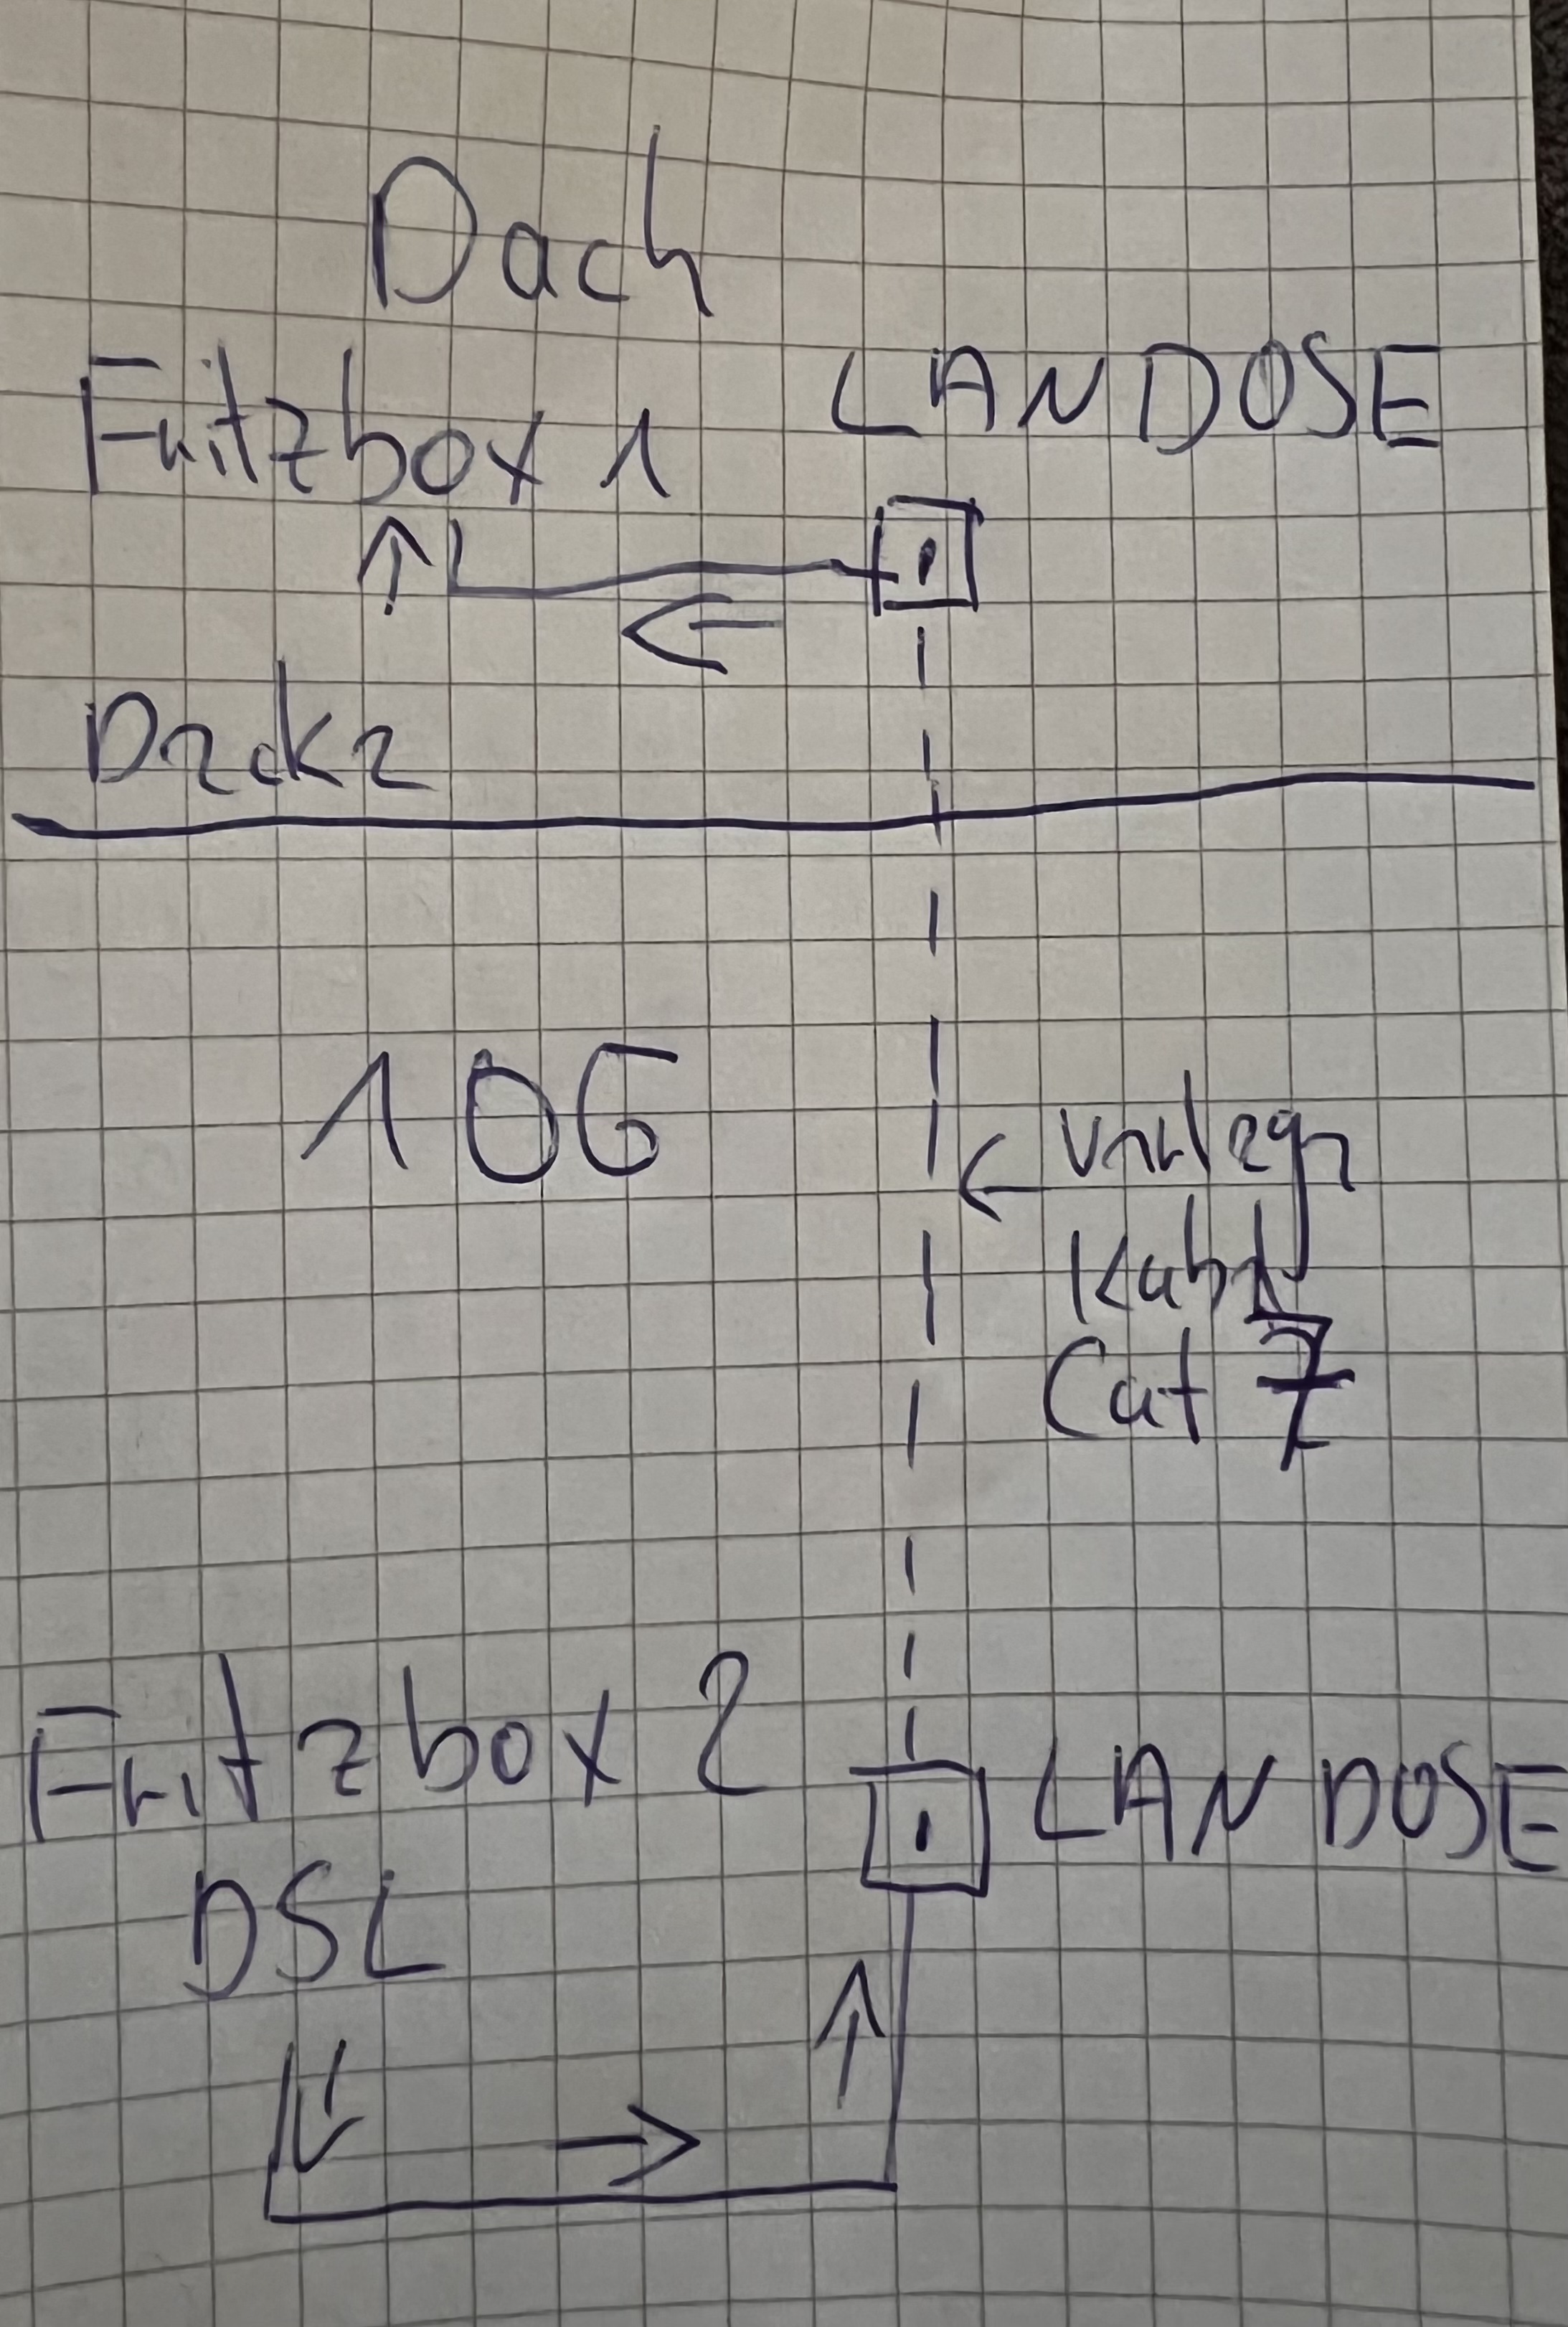 Dach
Fritzbox 1 LAN DOSE
Decke
1 OG
verlegen
Kabel
Cat 7
Fritzbox 2
LAN DOSE
DSL